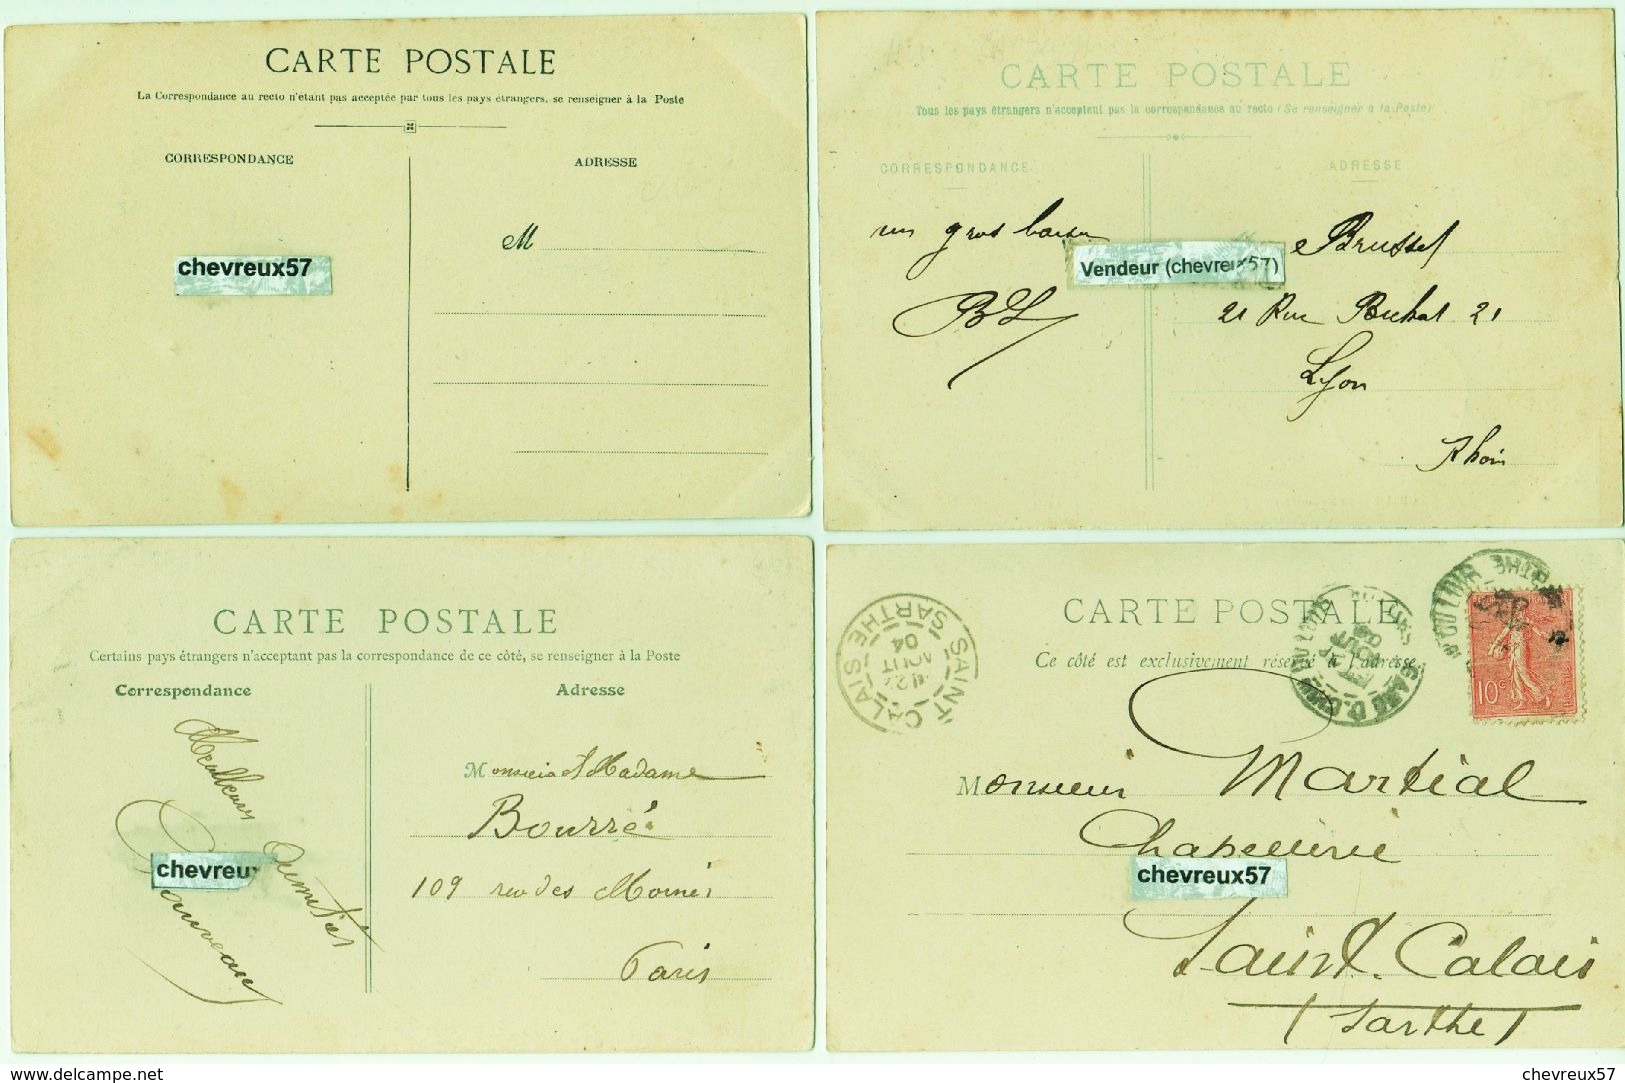 CARTE POSTALE
La Correspondance au recto n'étant pas acceptée par tous les pays étrangers, se renseigner à la Poste
CORRESPONDANCE
ADRESSE
M
chevreux57
CARTE POSTALE
Tous les pays étrangers n'acceptent pas la correspondance au recto (Se renseigner à la Poste)
CORRESPONDANCE
ADRESSE
un gros baiser
BL
Vendeur (chevreux57)
Brussel
21 Rue 21
Lyon
Rhône
CARTE POSTALE
Certains pays étrangers n'acceptant pas la correspondance de ce côté, se renseigner à la Poste
Correspondance
Adresse
Meilleures
Amitiés
Chauveau
chevreux
Monsieur et Madame
Bourré
109 rue des
Paris
CARTE POSTALE
Ce côté est exclusivement réservé à l'adresse
SAINT CALAIS
SARTHE
AOUT
04
10c
Monsieur Martial
Chapellerie
chevreux57
Saint. Calais
(Sarthe)
www.delcampe.net
chevreux57